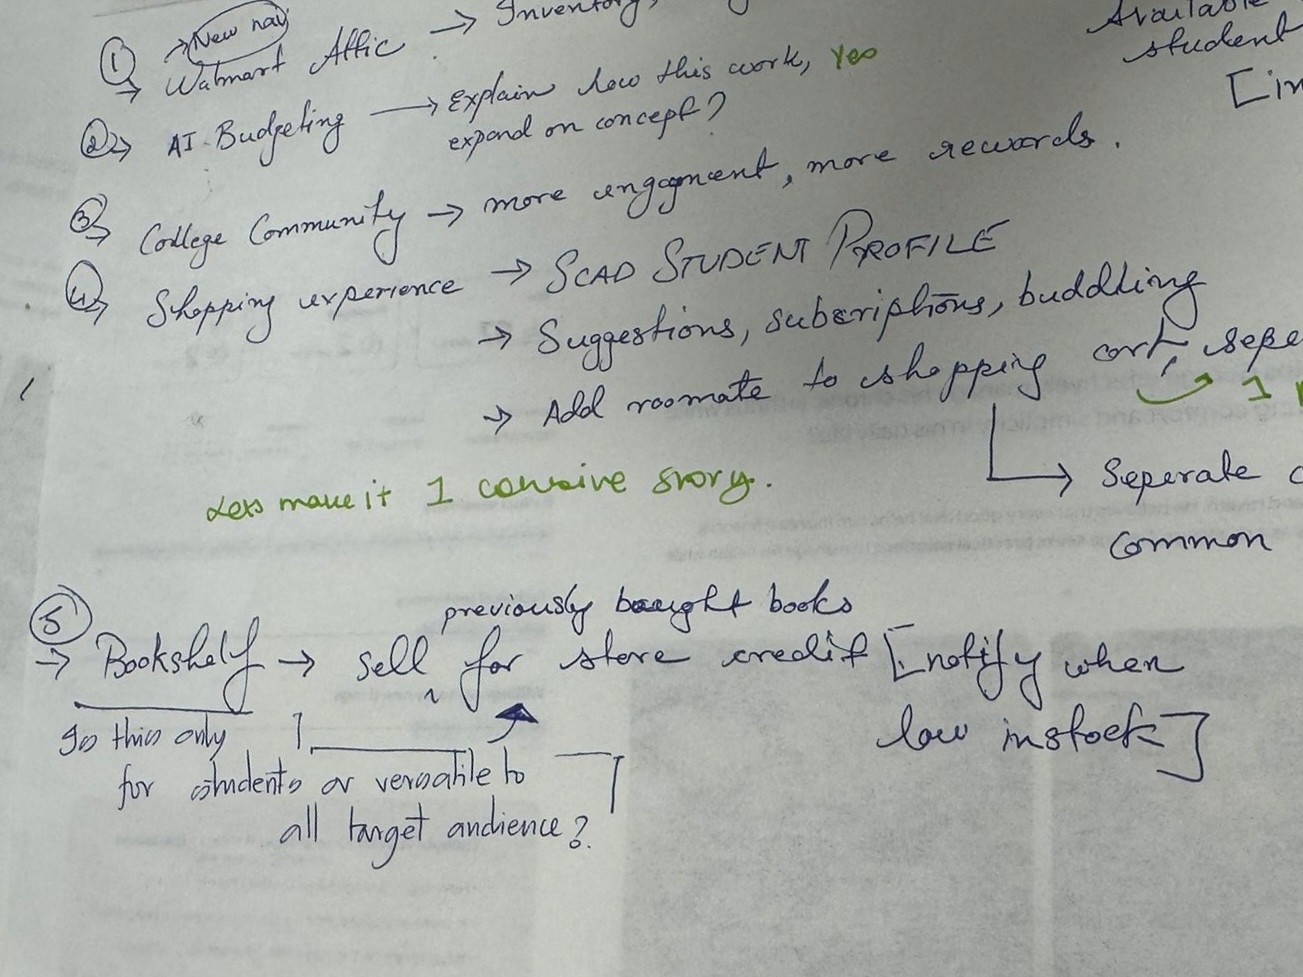 ① → New nav
→ Walmart Attic → Inventory,
Available
student
[in
② → AI Budgeting → explain how this work, Yes
expand on concept?
③ → College Community → more engagment, more rewards.
④ → Shopping experience → SCAD STUDENT PROFILE
→ Suggestions, subscriptions, buddling
→ Add roomate to shopping cart, sepe
1
→ Seperate
common
Lets make it 1 story.
⑤
previously bought books
→ Bookshelf → sell for store credit [notify when
low instock]
Is this only
for students or versatile to
all target audience?